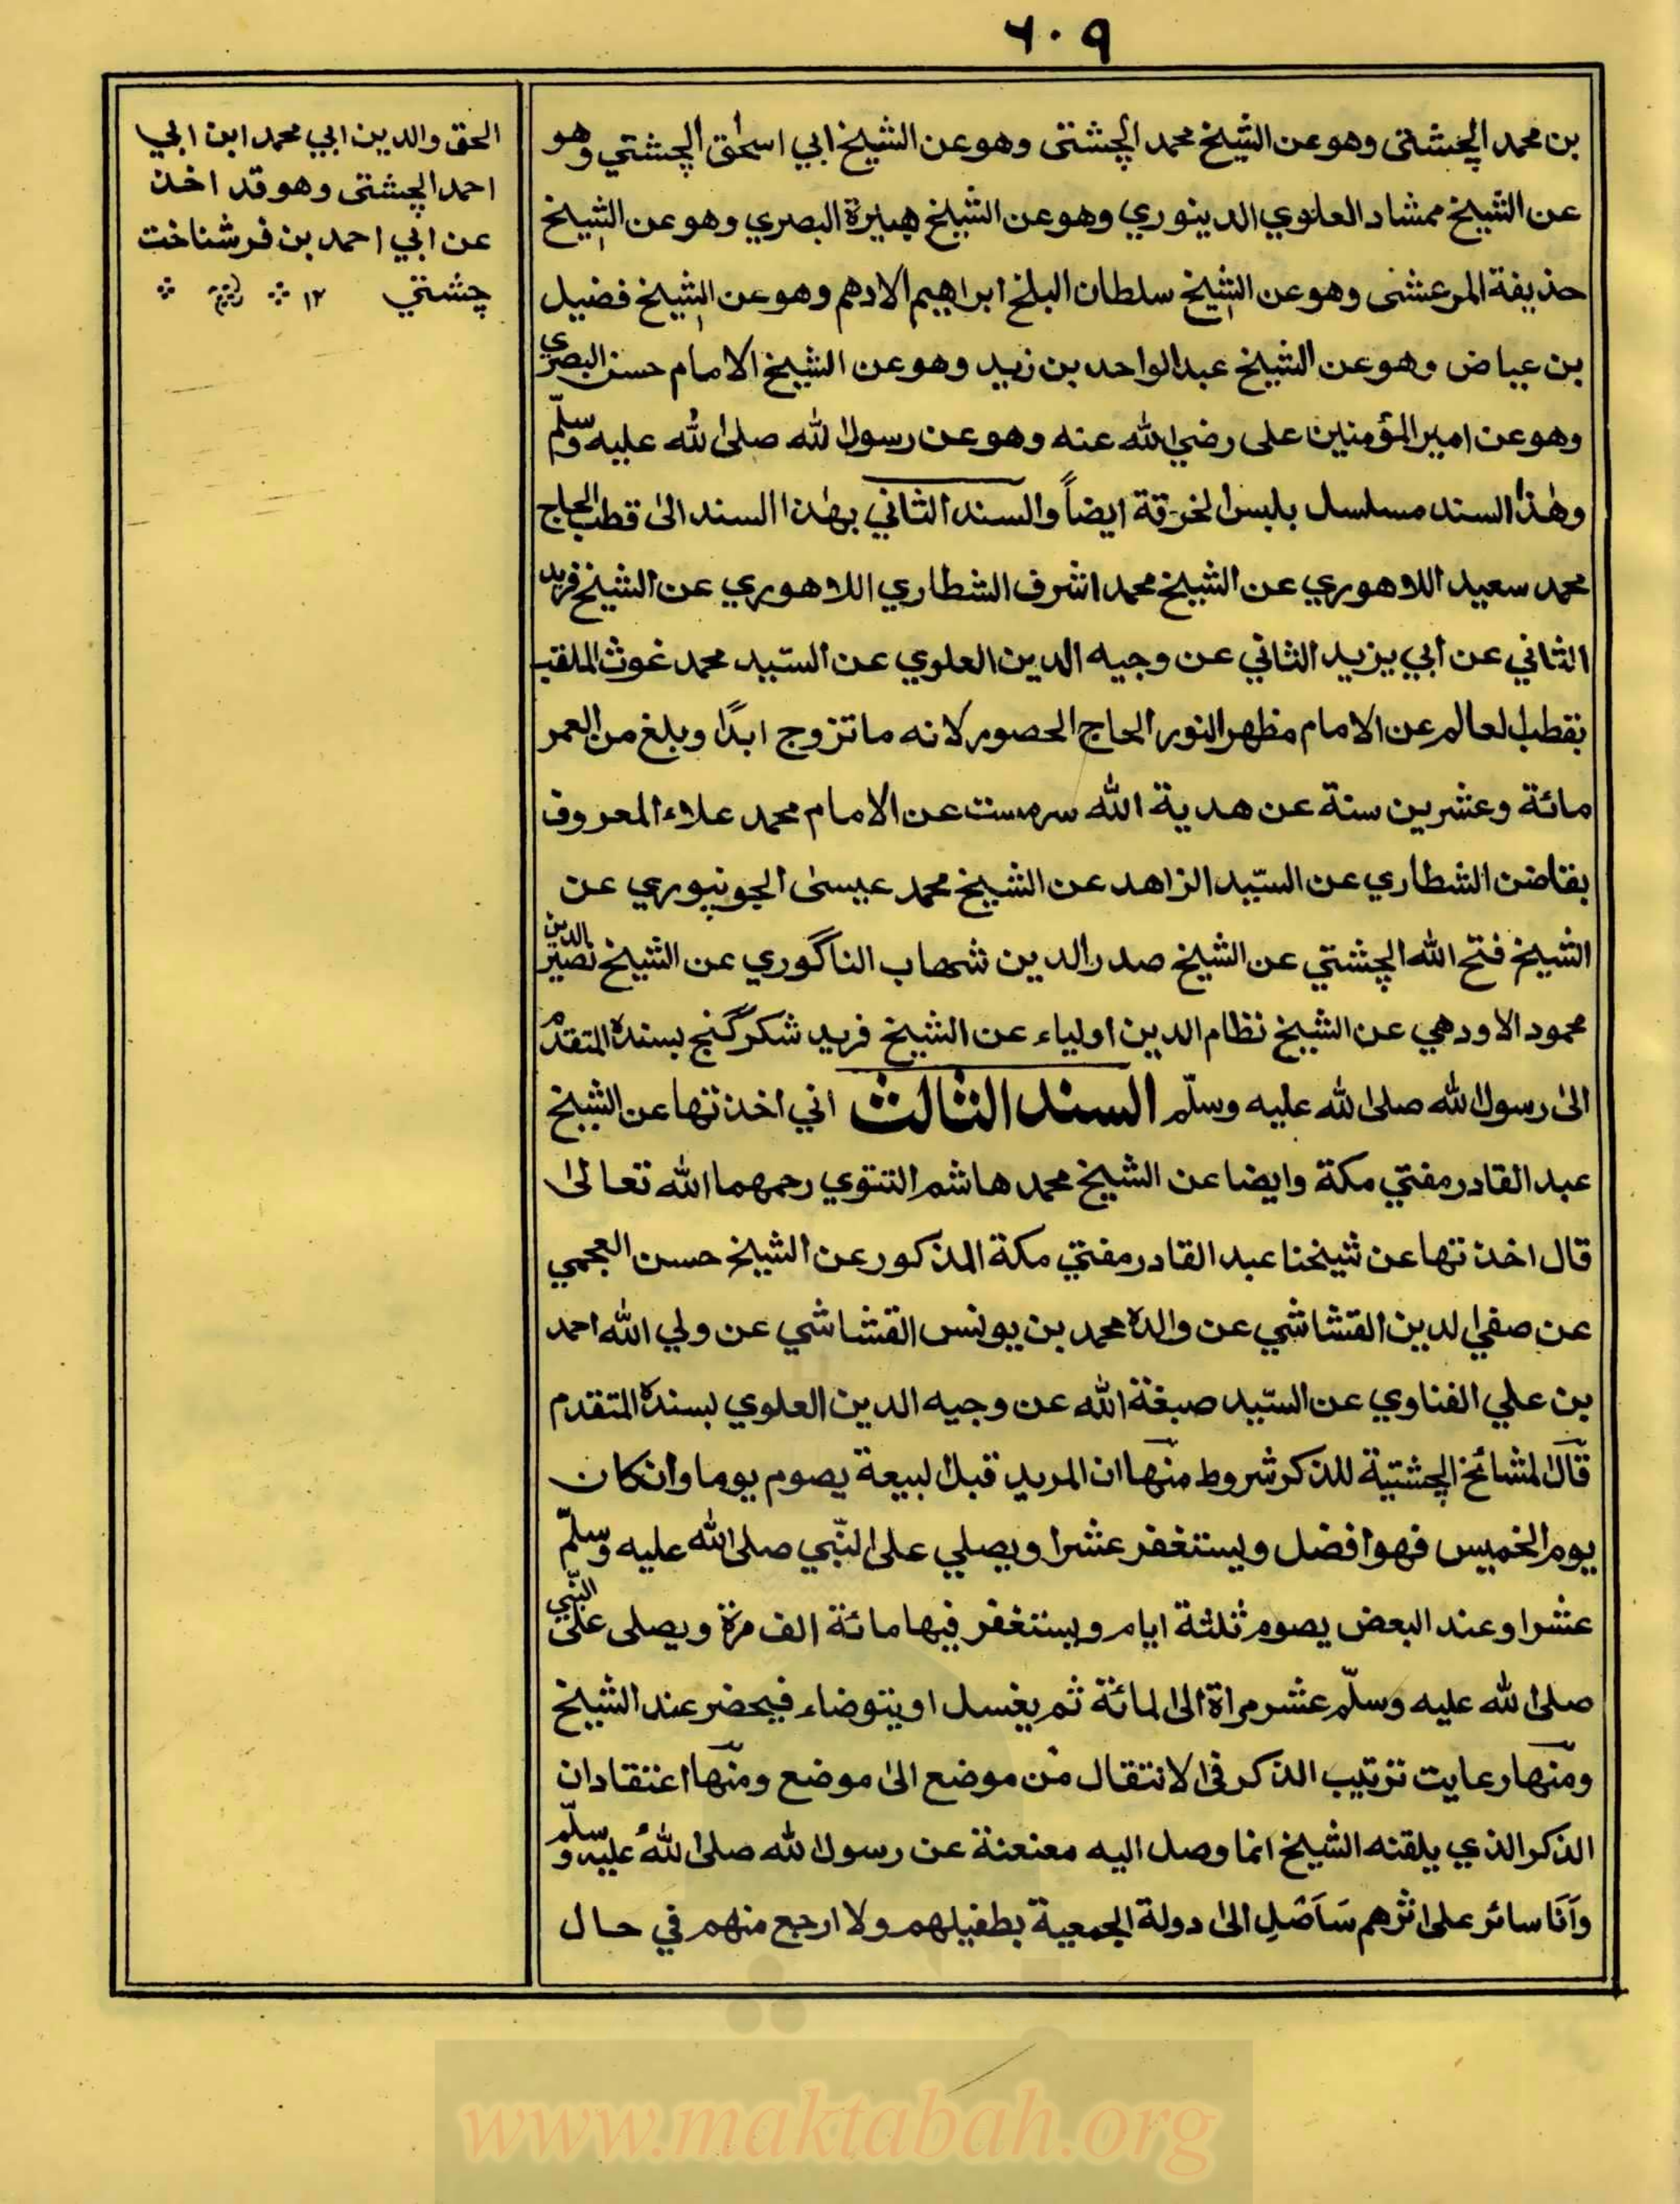 ٦٠٩
بن محمد الچشتی وهو عن الشیخ محمد الچشتی وهو عن الشیخ ابي اسحٰق الچشتي وهو
عن الشیخ ممشاد العلوي الدینوري وهو عن الشیخ هبیرة البصري وهو عن الشیخ
حذیفة المرعشی وهو عن الشیخ سلطان البلخ ابراهیم الادهم وهو عن الشیخ فضیل
بن عیاض وهو عن الشیخ عبد الواحد بن زید وهو عن الشیخ الامام حسن البصري
وهو عن امیر المؤمنین علی رضي الله عنه وهو عن رسول الله صلی الله علیه وسلّم
وهٰذا السند مسلسل بلبس الخرقة ایضاً والسند الثاني بهٰذا السند الی قطب الحاج
محمد سعید اللاهوري عن الشیخ محمد اشرف الشطاري اللاهوري عن الشیخ فرید
الثاني عن ابي یزید الثاني عن وجیه الدین العلوي عن السّید محمد غوث الملقب
بقطب العالم عن الامام مظهر النور الحاج الحصور لانه ما تزوج ابدًا وبلغ من العمر
مائة وعشرین سنة عن هدیة الله سرمست عن الامام محمد علاء المعروف
بقاضن الشطاري عن السّید الزاهد عن الشیخ محمد عیسیٰ الجونپوري عن
الشیخ فتح الله الچشتي عن الشیخ صدر الدین شهاب الناگوري عن الشیخ نصیر الدین
محمود الاودهي عن الشیخ نظام الدین اولیاء عن الشیخ فرید شکر گنج بسنده المتقدم
الیٰ رسول الله صلی الله علیه وسلّم السند الثالث اني اخذتها عن الشیخ
عبد القادر مفتي مکة وایضا عن الشیخ محمد هاشم التتوي رحمهما الله تعالیٰ
قال اخذتها عن شیخنا عبد القادر مفتي مکة المذکور عن الشیخ حسن العجمي
عن صفي الدین القشاشي عن والده محمد بن یونس القشاشي عن ولي الله احمد
بن علي الفناوي عن السّید صبغة الله عن وجیه الدین العلوي بسنده المتقدم
قال المشائخ الچشتیة للذکر شروط منها ان المرید قبل البیعة یصوم یوما وان کان
یوم الخمیس فهو افضل ویستغفر عشرا ویصلي علی النّبي صلی الله علیه وسلّم
عشرا وعند البعض یصوم ثلثة ایام ویستغفر فیها مائة الف مرة ویصلی علی النّبي
صلی الله علیه وسلّم عشر مراة الی المائة ثم یغسل او یتوضاء فیحضر عند الشیخ
ومنها رعایت ترتیب الذکر فی الانتقال من موضع الی موضع ومنها اعتقاد ان
الذکر الذي یلقنه الشیخ انما وصل الیه معنعنة عن رسول الله صلی الله علیه وسلّم
وَاَنَا سائر علی اثرهم سَاَصَلِ الیٰ دولة الجمعیة بطفیلهم ولا ارجع منهم في حال
الحق والدین ابي محمد ابن ابي
احمد الچشتی وهو قد اخذ
عن ابي احمد بن فرشناخت
چشتي ١٢
www.maktabah.org